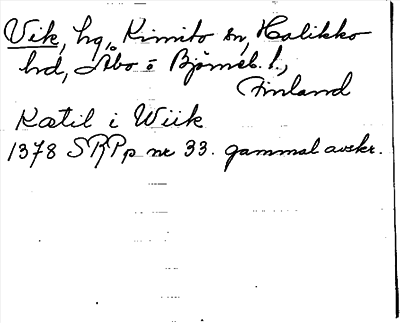 Vik, hg, Kimito sn, Halikko
hd, Åbo o Björneb. l.,
Finland
Kætil i Wiik
1378 SRPp nr 33. gammal avskr.